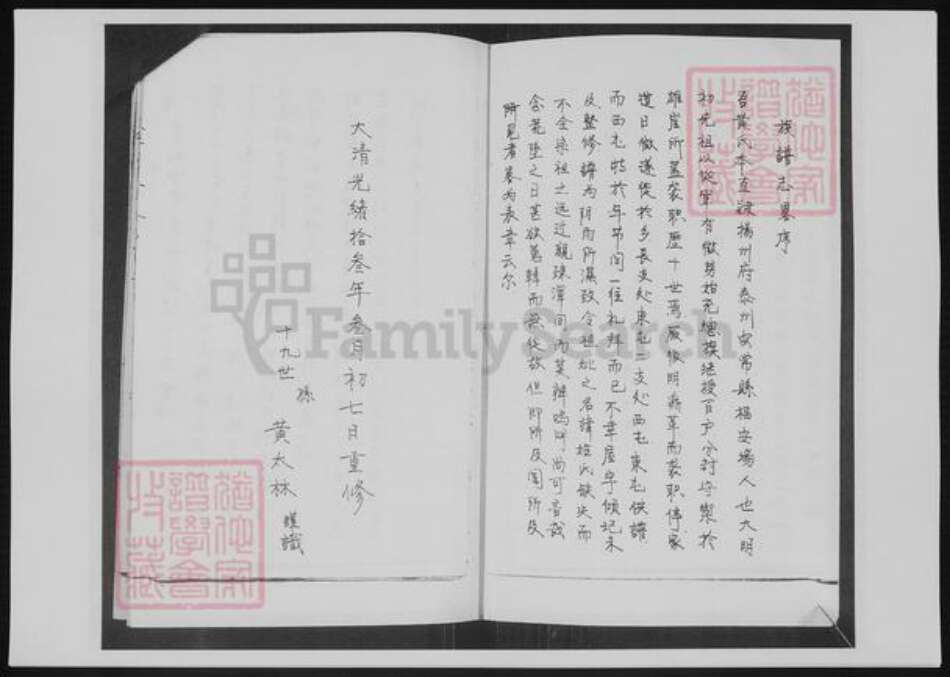 族譜志畧序
吾黃氏本直隸揚州府泰州如常縣掘安場人也大明
初先祖以從軍有微勞始充總旗繼授百戶分封守禦於
雄崖所蓋襲职歷十世焉厥後明鼎革而襲职停家
道日微遂徙於乡長支处東屯二支处西屯東屯供譜
而西屯時於年节间一往礼拜而已不幸屋宇倾圮未
及整修譜为阴雨所濕致令祖妣之名諱姓氏缺失而
不全渙祖之远近親疎渾同而莫辨嗚呼尚可言哉
念茫墜之日甚欲葺輯而無從故但即所及闻所及
所見者畧为表章云尔
大清光緒拾叁年叁月初七日重修
十九世孫黃太林謹識
猶他家
譜學會
收藏
猶他家
譜學會
收藏
FamilySearch